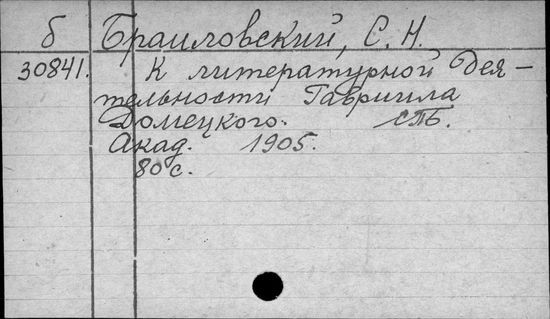 б Браиловский, С. Н.
30841. К литературной дея-
тельности Гавриила
Домецкого. СПБ.
Акад. 1905.
80 с.